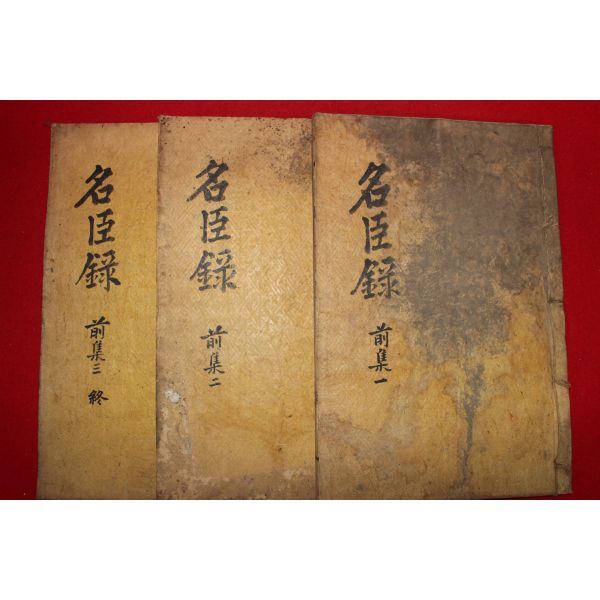 名臣錄
前集一
名臣錄
前集二
名臣錄
前集三 終